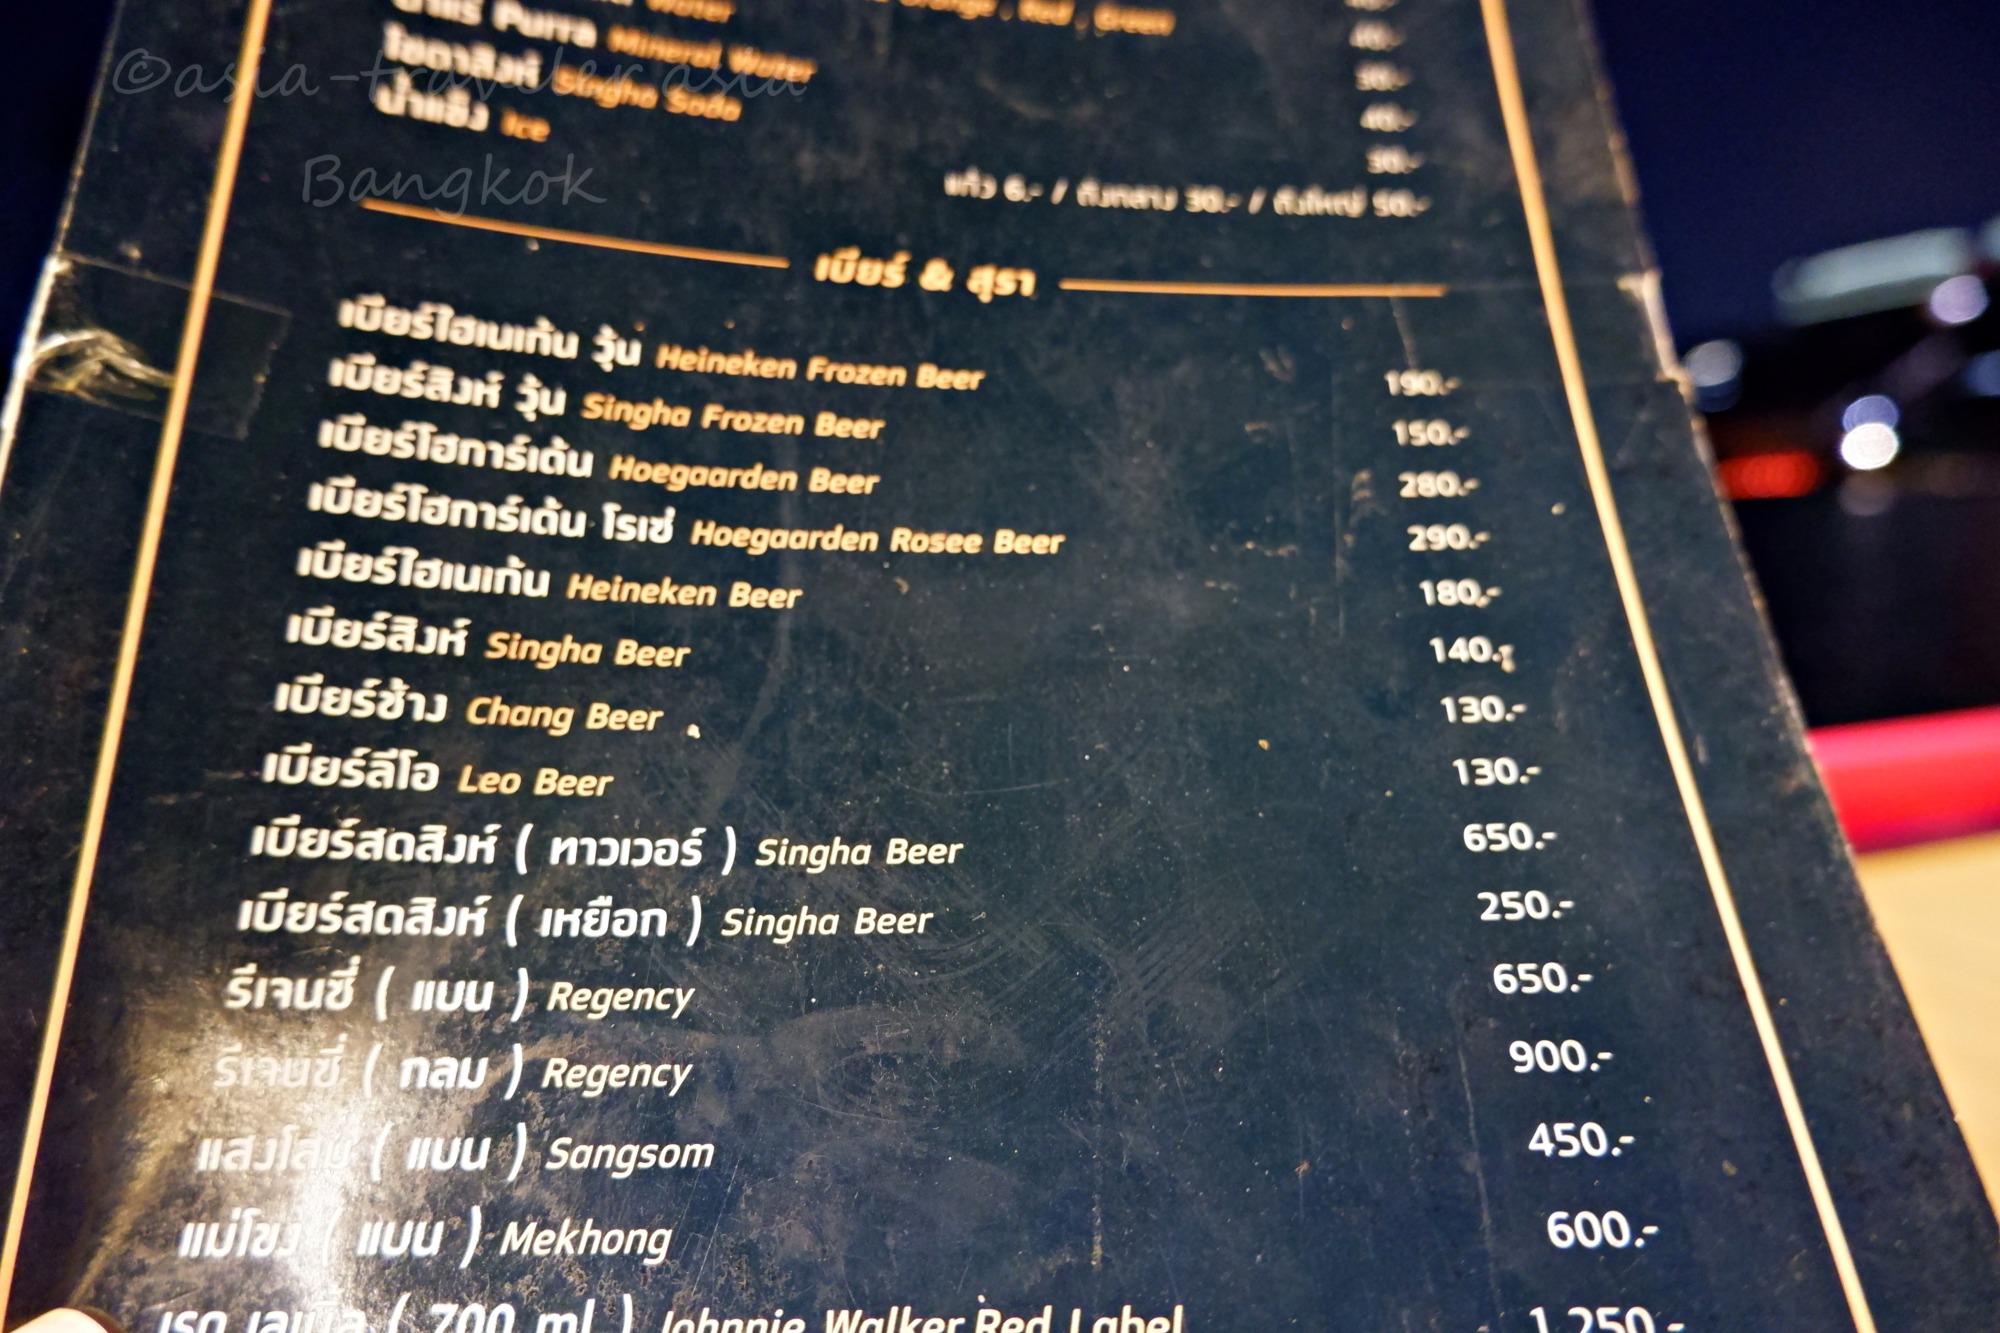 Orange , Red , Green
Water
Purra Mineral Water
40.-
โซดาสิงห์ Singha Soda
30.-
น้ำแข็ง Ice
40.-
30.-
แก้ว 6.- / ถังกลาง 30.- / ถังใหญ่ 50.-
©asia-traveler.asia
Bangkok
เบียร์ & สุรา
เบียร์ไฮเนเก้น วุ้น Heineken Frozen Beer 190.-
เบียร์สิงห์ วุ้น Singha Frozen Beer 150.-
เบียร์โฮการ์เด้น Hoegaarden Beer 280.-
เบียร์โฮการ์เด้น โรเซ่ Hoegaarden Rosee Beer 290.-
เบียร์ไฮเนเก้น Heineken Beer 180.-
เบียร์สิงห์ Singha Beer 140.-
เบียร์ช้าง Chang Beer 130.-
เบียร์ลีโอ Leo Beer 130.-
เบียร์สดสิงห์ ( ทาวเวอร์ ) Singha Beer 650.-
เบียร์สดสิงห์ ( เหยือก ) Singha Beer 250.-
รีเจนซี่ ( แบน ) Regency 650.-
รีเจนซี่ ( กลม ) Regency 900.-
แสงโสม ( แบน ) Sangsom 450.-
แม่โขง ( แบน ) Mekhong 600.-
เรด เลเบิล ( 700 ml ) Johnnie Walker Red Label 1,250.-